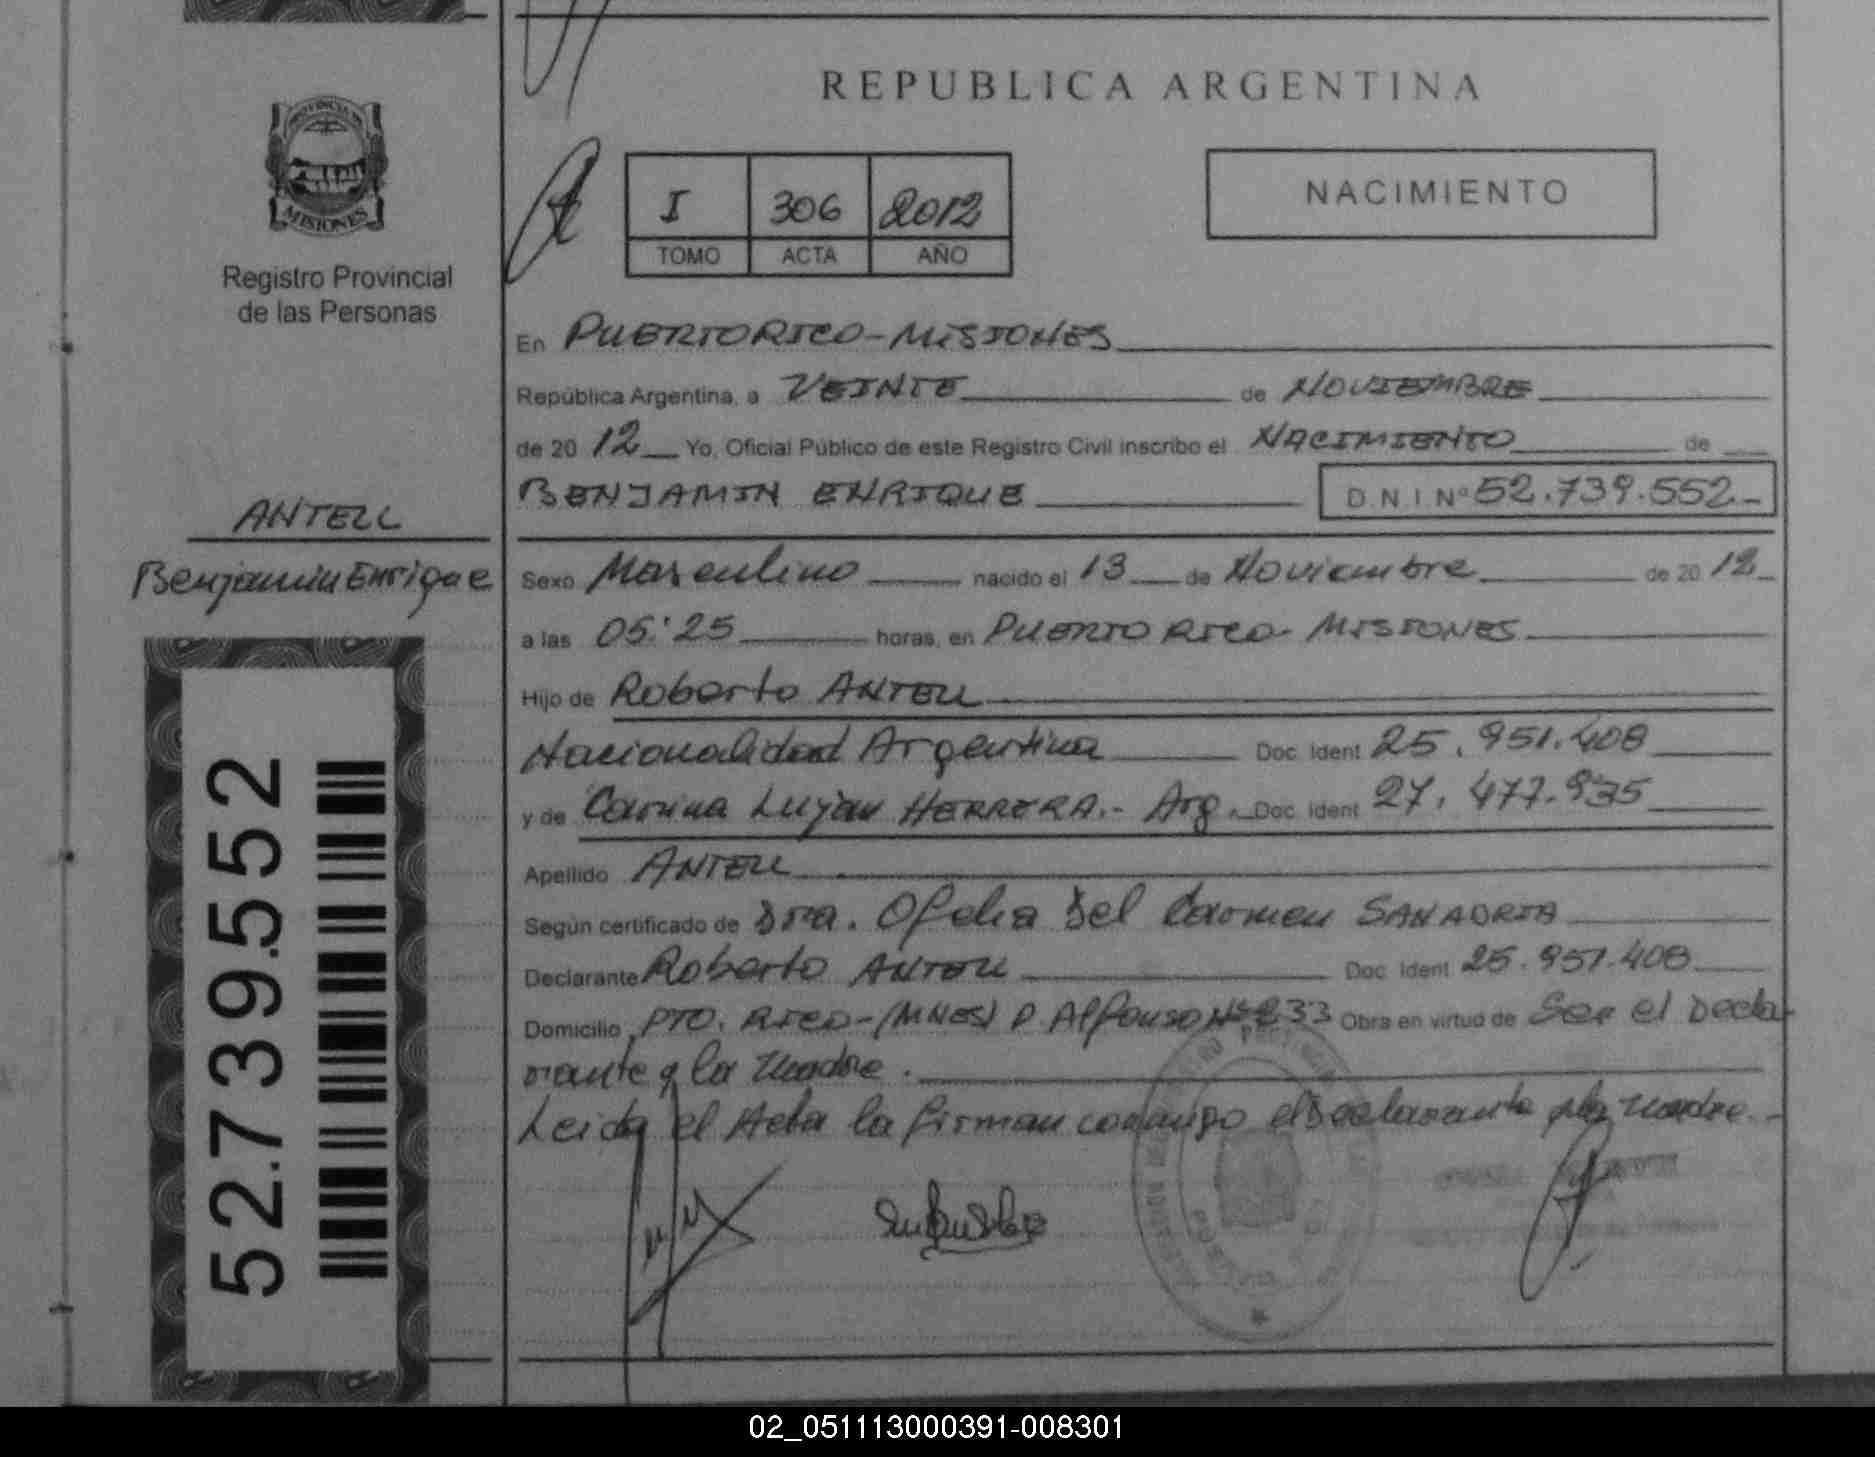 REPUBLICA ARGENTINA
PROVINCIA DE
MISIONES
Registro Provincial
de las Personas
I 306 2012
TOMO ACTA AÑO
NACIMIENTO
En PUERTO RICO - MISIONES
República Argentina, a VEINTE de NOVIEMBRE
de 20 12 Yo, Oficial Público de este Registro Civil inscribo el NACIMIENTO de
BENJAMIN ENRIQUE D.N.I Nº 52.739.552
ANTELL
Benjamin Enrique
Sexo Masculino nacido el 13 de Noviembre de 20 12
a las 05:25 horas, en PUERTO RICO - MISIONES
Hijo de Roberto ANTELL
Nacionalidad Argentina Doc. Ident 25.951.408
y de Carina Lujan HERRERA.- Arg. Doc. Ident 27.477.935
Apellido ANTELL
Según certificado de Dra. Ofelia Del Carmen SANABRIA
Declarante Roberto ANTELL Doc. Ident 25.951.408
Domicilio PTO. RICO - (MNES) P. Alfonso Nº 233 Obra en virtud de Ser el Decla-
rante y la Madre.
Leida el Acta la firman conmigo el Declarante y la Madre.-
52.739.552
02_051113000391-008301